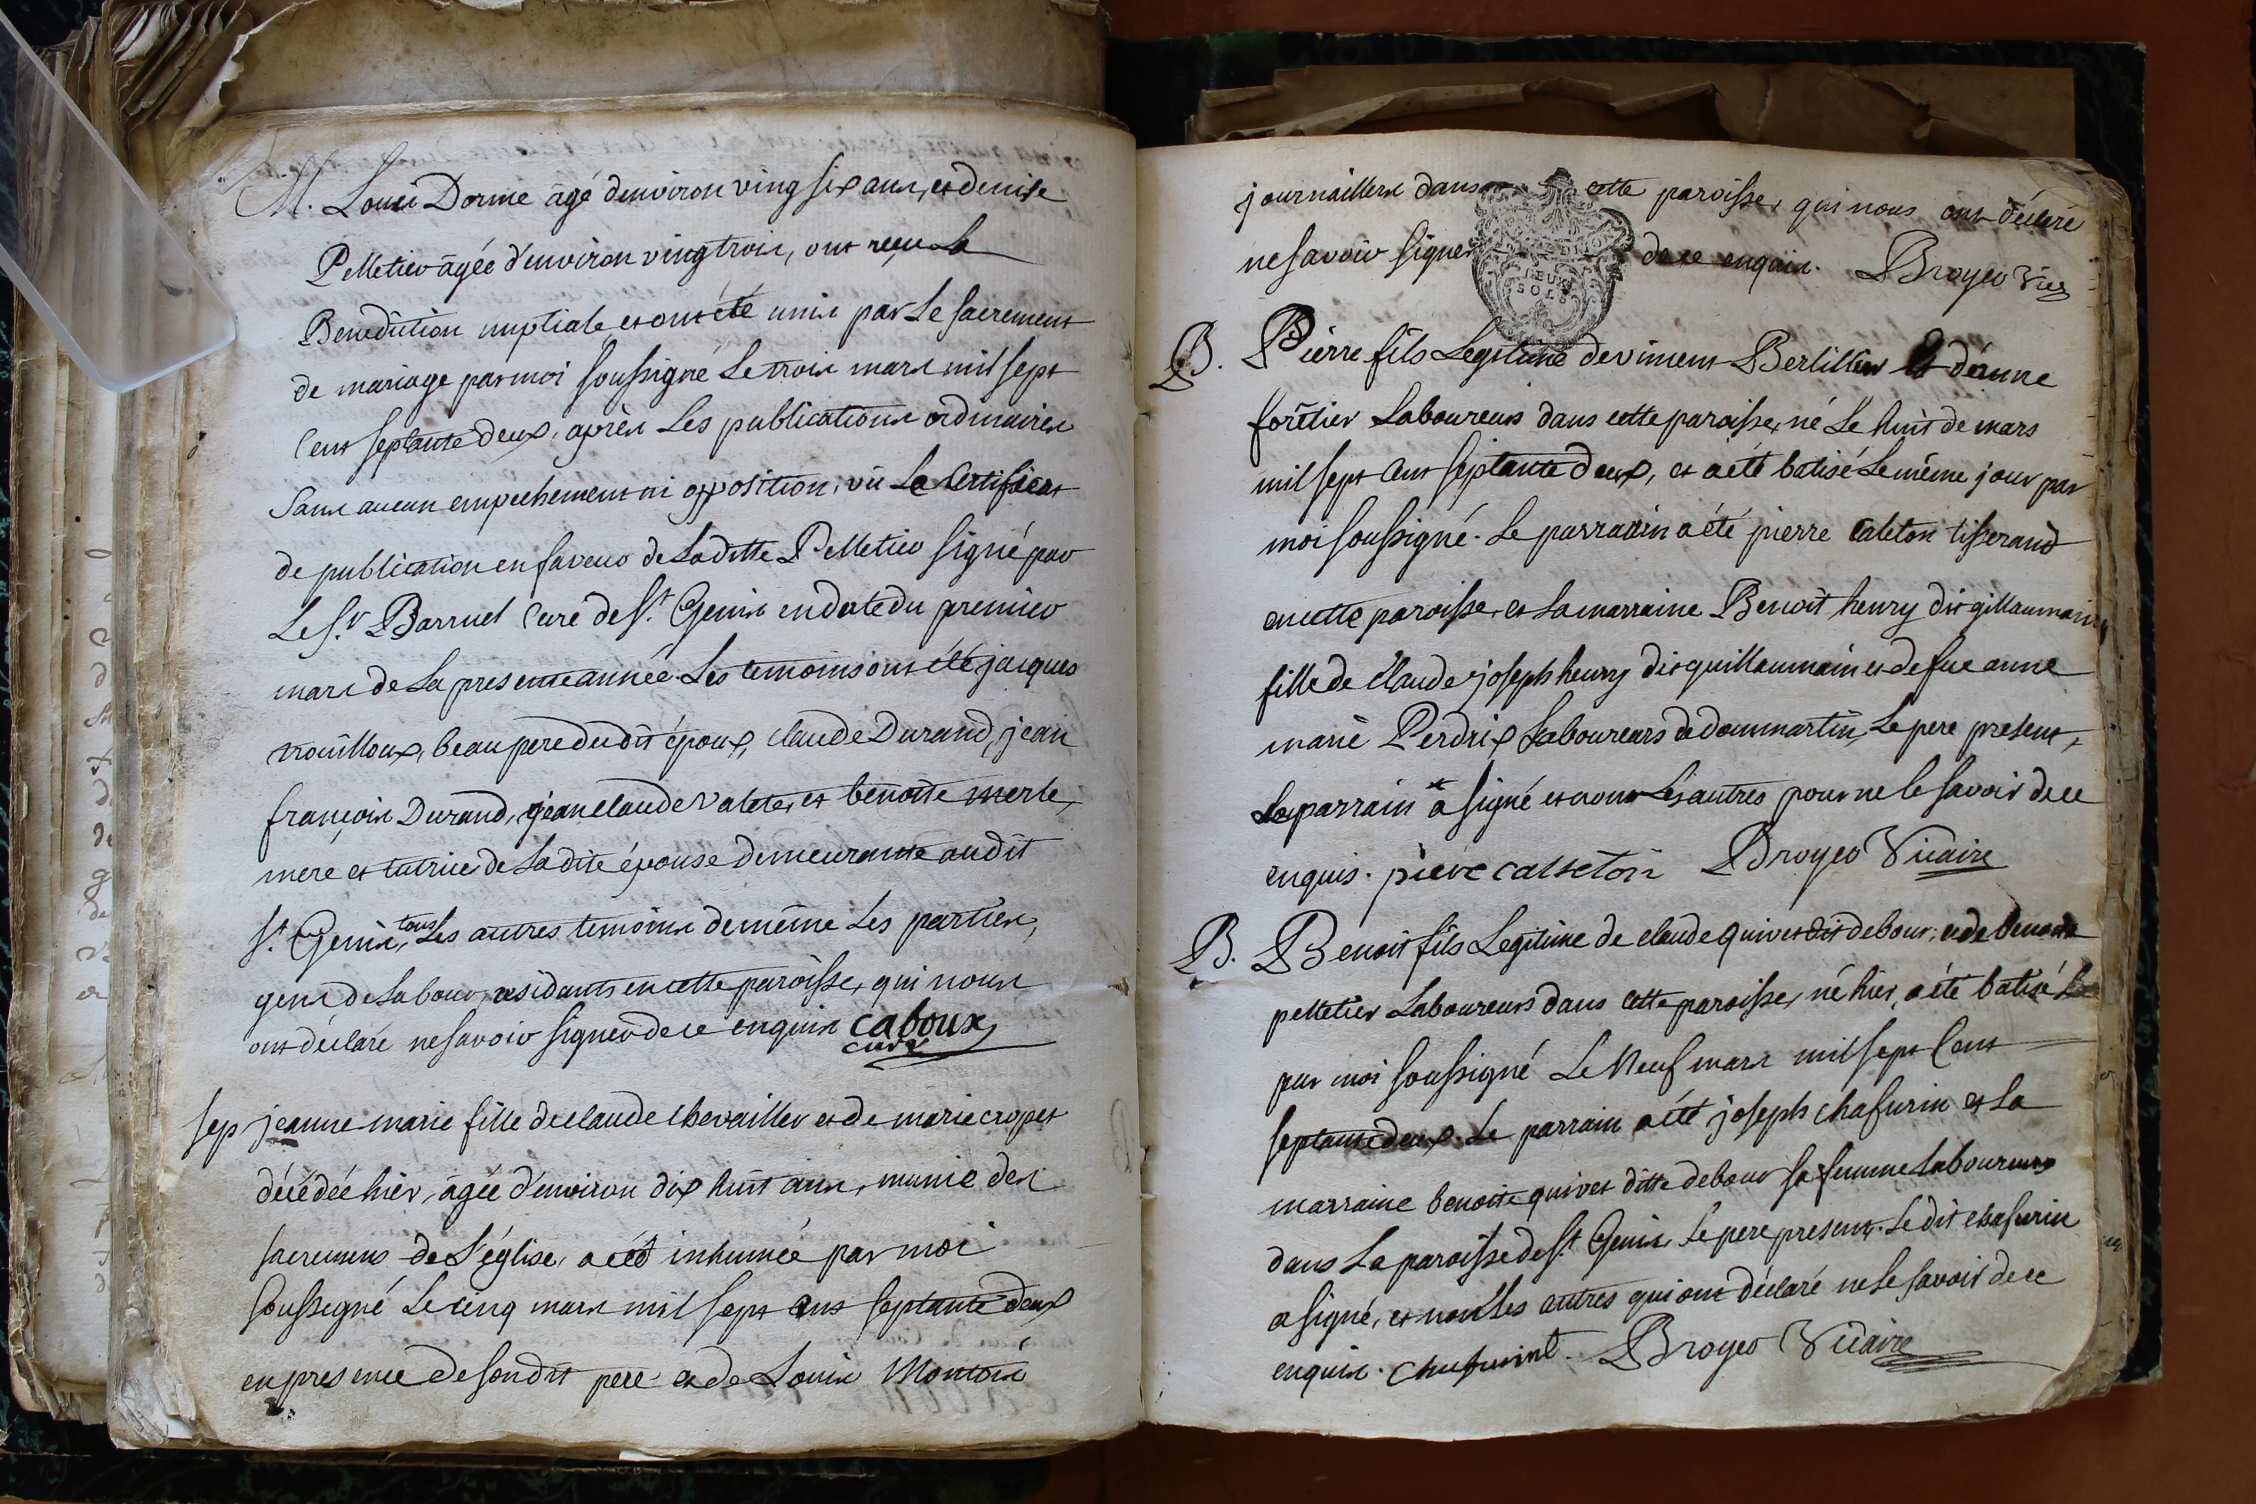 M. Louis Dorme agé denviron vingsix ans, et denise
Pelletier agée d'environ vingtrois, ont reçu la
Benediction nuptiale et ont été unis par le sacrement
de mariage par moi soussigné le trois mars mil sept
cent septante deux, après les publications ordinaires
sans aucun empechement ni opposition, vû le certificat
de publication en faveur de laditte Pelletier signé par
le Sr Barruel curé de St. Genis en date du premier
mars de la presente année. les temoins ont été jacques
trouilloux, beau pere dudit époux, claude Durand, jean
françois Durand, jean claude valete, et benoite merle,
mere et tutrice de la dite épouse demeurante audit
St. Genis, tous les autres temoins de meme les parties,
gens de labour, residants en cette paroisse, qui nous
ont déclaré ne savoir signer de ce enquis caboux
curé
sep jeanne marie fille de claude chevaillier et de marie cropet
décédée hier, agée d'environ dix huit ans, munie des
sacremens de l'église, a été inhumée par moi
soussigné le cinq mars mil sept cens septante deux
en presence de sondit pere et de Louis Montois
journailliers dans cette paroisse, qui nous ont déclaré
ne savoir signer de ce enquis. Broyer vic
DEUX
SOLS
B. Pierre fils Legitime de vincent Berlillier et d'anne
forêtier Laboureurs dans cette paroisse, né le huit de mars
mil sept cent septante deux, et a été batisé le même jour par
moi soussigné. le parrain a été pierre caleton tisserand
en cette paroisse, et la marraine Benoit henry dit gillaumain
fille de claude joseph henry dit guillaumain et de fue anne
marie Perdrix laboureurs de dommartin, le pere present,
le parrain a signé et non les autres pour ne le savoir de ce
enquis. pierre calleton Broyer Vicaire
B. Benoit fils Legitime de claude quivet dit debour, et de benoite
pelletier Laboureurs dans cette paroisse, né hier, a été batisé
par moi soussigné Le Neuf mars mil sept Cent
septante deux. Le parrain a été joseph chafurin et la
marraine benoite quivet ditte debour sa femme laboureurs
dans la paroisse de St Genis le pere present. le dit chafurin
a signé, et non les autres qui ont déclaré ne le savoir de ce
enquis. chafurin Broyer Vicaire